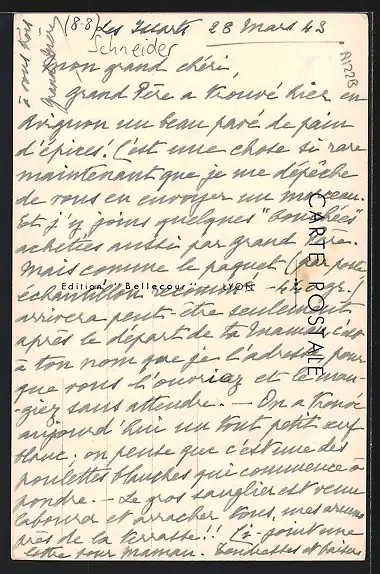 (8-8) Les Issarts 28 Mars 43
Schneider
A122B
mon grand chéri,
grand Père a trouvé hier en
Avignon un beau pavé de pain
d'épices! C'est une chose si rare
maintenant que je me dépêche
de vous en envoyer un morceau.
Et j'y joins quelques "bouchées"
achetées aussi par grand Père.
Mais comme le paquet (par poste
échantillon recomm. - 44 gr.)
arrivera peut-être seulement
après le départ de ta Maman c'est
à ton nom que je l'adresse pour
que vous l'ouvriez et le man-
giez sans attendre. — On a trouvé
aujourd'hui un tout petit œuf
blanc; on pense que c'est une des
poulettes blanches qui commence à
pondre. — Le gros sanglier est venu
labourer et arracher tous mes
près de la terrasse!! Ci-joint une
lettre pour Maman. Tendresses et baisers
à vous trois
grand'mère
CARTE POSTALE
Edition "Bellecour" LYON